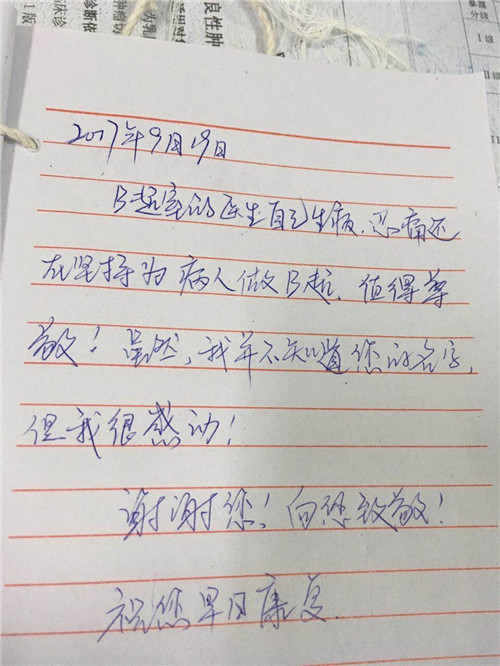 良性肿
床诊
诊断依
1版
分级
I级
2017年9月19日
B超室的医生自己生病,忍痛还
在坚持为病人做B超,值得尊
敬!虽然,我并不知道您的名字,
但我很感动!
谢谢您!向您致敬!
祝您早日康复.